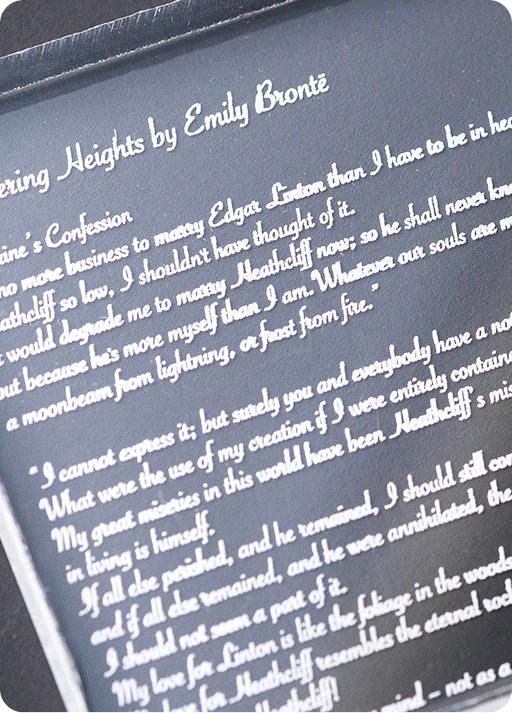 ering Heights by Emily Brontë
ine's Confession
no more business to marry Edgar Linton than I have to be in hea
athcliff so low, I shouldn't have thought of it.
t would degrade me to marry Heathcliff now; so he shall never kno
but because he's more myself than I am. Whatever our souls are m
a moonbeam from lightning, or frost from fire."
"I cannot express it; but surely you and everybody have a not
What were the use of my creation if I were entirely containe
My great miseries in this world have been Heathcliff's mis
in living is himself.
If all else perished, and he remained, I should still con
and if all else remained, and he were annihilated, the
I should not seem a part of it.
My love for Linton is like the foliage in the woods
love for Heathcliff resembles the eternal rock
Heathcliff! mind – not as a